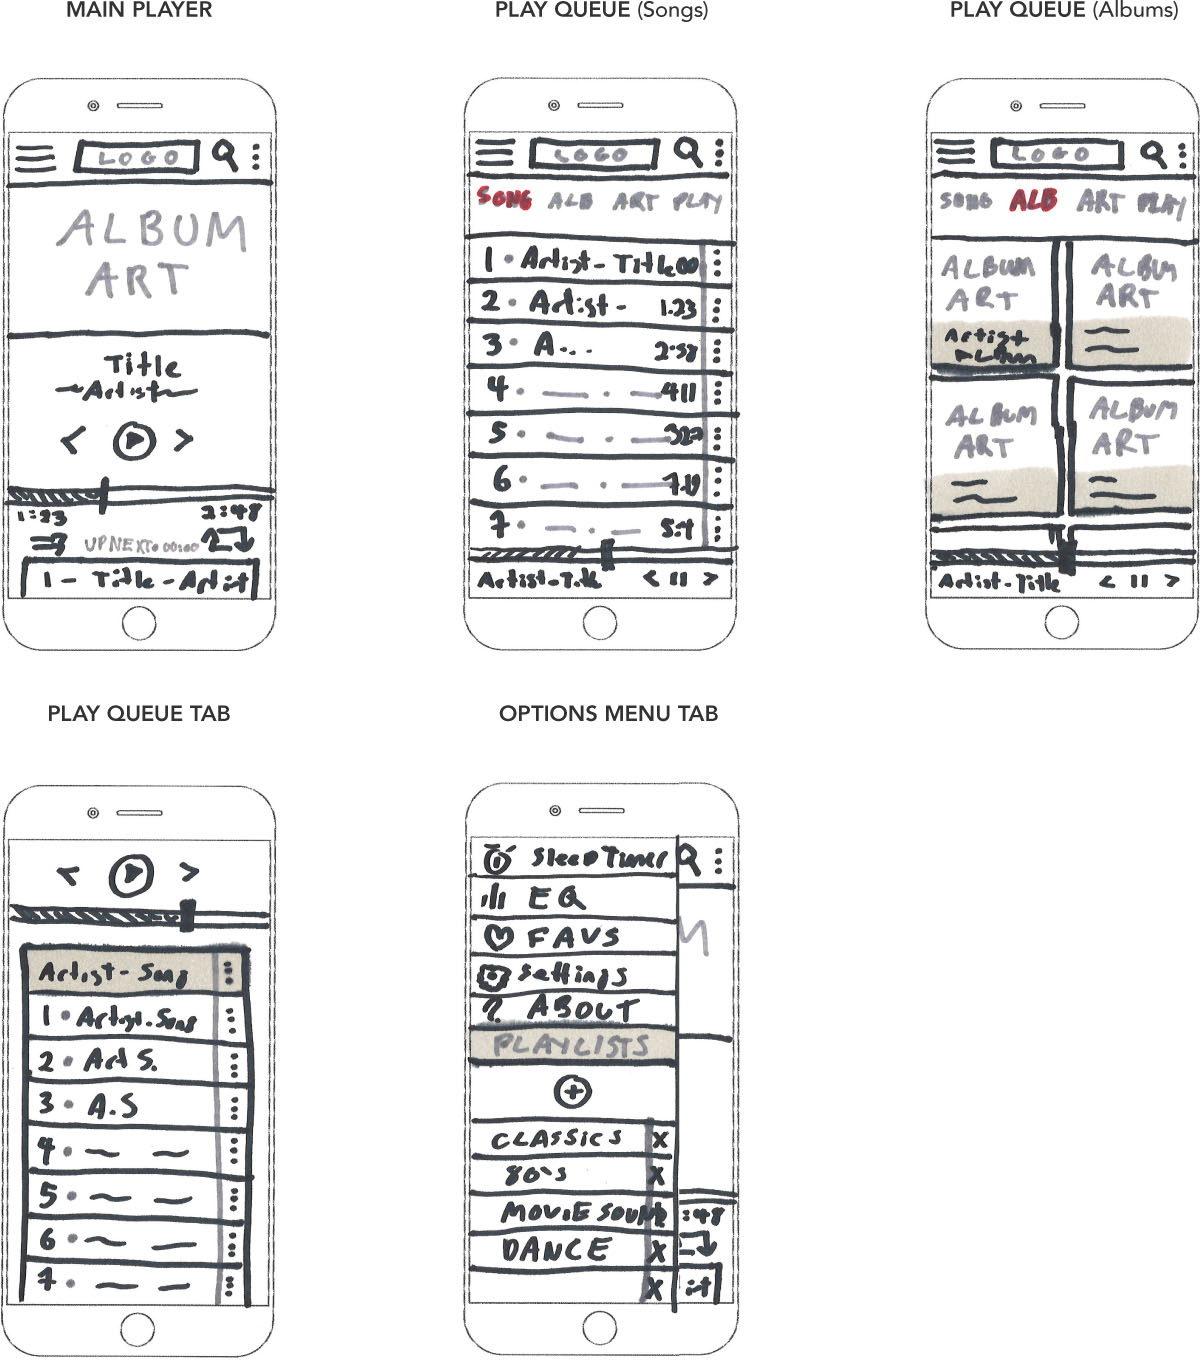 MAIN PLAYER
LOGO
ALBUM
ART
Title
Artist
1:23 2:48
UP NEXT: 00:00
1 - Title - Artist
PLAY QUEUE (Songs)
LOGO
SONG ALB ART PLAY
1 • Artist - Title 00
2 • Artist - 1.23
3 • A... 2:58
4 • 411
5 •
6 •
7 •
Artist-Title < II >
PLAY QUEUE (Albums)
LOGO
SONG ALB ART PLAY
ALBUM
ART
Artist
Album
ALBUM
ART
ALBUM
ART
ALBUM
ART
Artist-Title < II >
PLAY QUEUE TAB
Artist - Song
1 • Artist. Song
2 • Art S.
3 • A.S
4 •
5 •
6 •
7 •
OPTIONS MENU TAB
Sleep Timer
EQ
FAVS
Settings
? ABOUT
PLAYLISTS
CLASSICS X
80's X
MOVIE SOUN :48
DANCE X
X ist